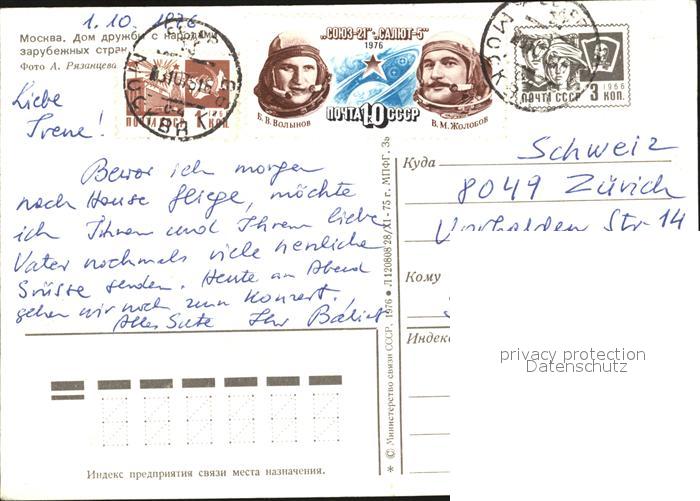 1.10.1976
Москва. Дом дружбы с народами
зарубежных стран
Фото А. Рязанцева
Liebe
Irene!
Bevor ich morgen
nach Hause fliege, möchte
ich Ihnen und Ihrem lieben
Vater nochmals viele herzliche
Grüsse senden. Heute am Abend
gehen wir noch zum Konzert.
Alles Gute Ihr
ПОЧТА СССР 1 КОП.
МОСКВА
„СОЮЗ-21"-„САЛЮТ-5"
1976
Б. В. ВОЛЫНОВ
ПОЧТА 10 СССР
В. М. ЖОЛОБОВ
МОСКВА
1966
ПОЧТА СССР 3 КОП.
Куда
Schweiz
8049 Zürich
Str. 14
Кому
Индекс
* © Министерство связи СССР, 1976 • Л120808 28/XI-75 г. МПФГ.
Индекс предприятия связи места назначения.
privacy protection
Datenschutz